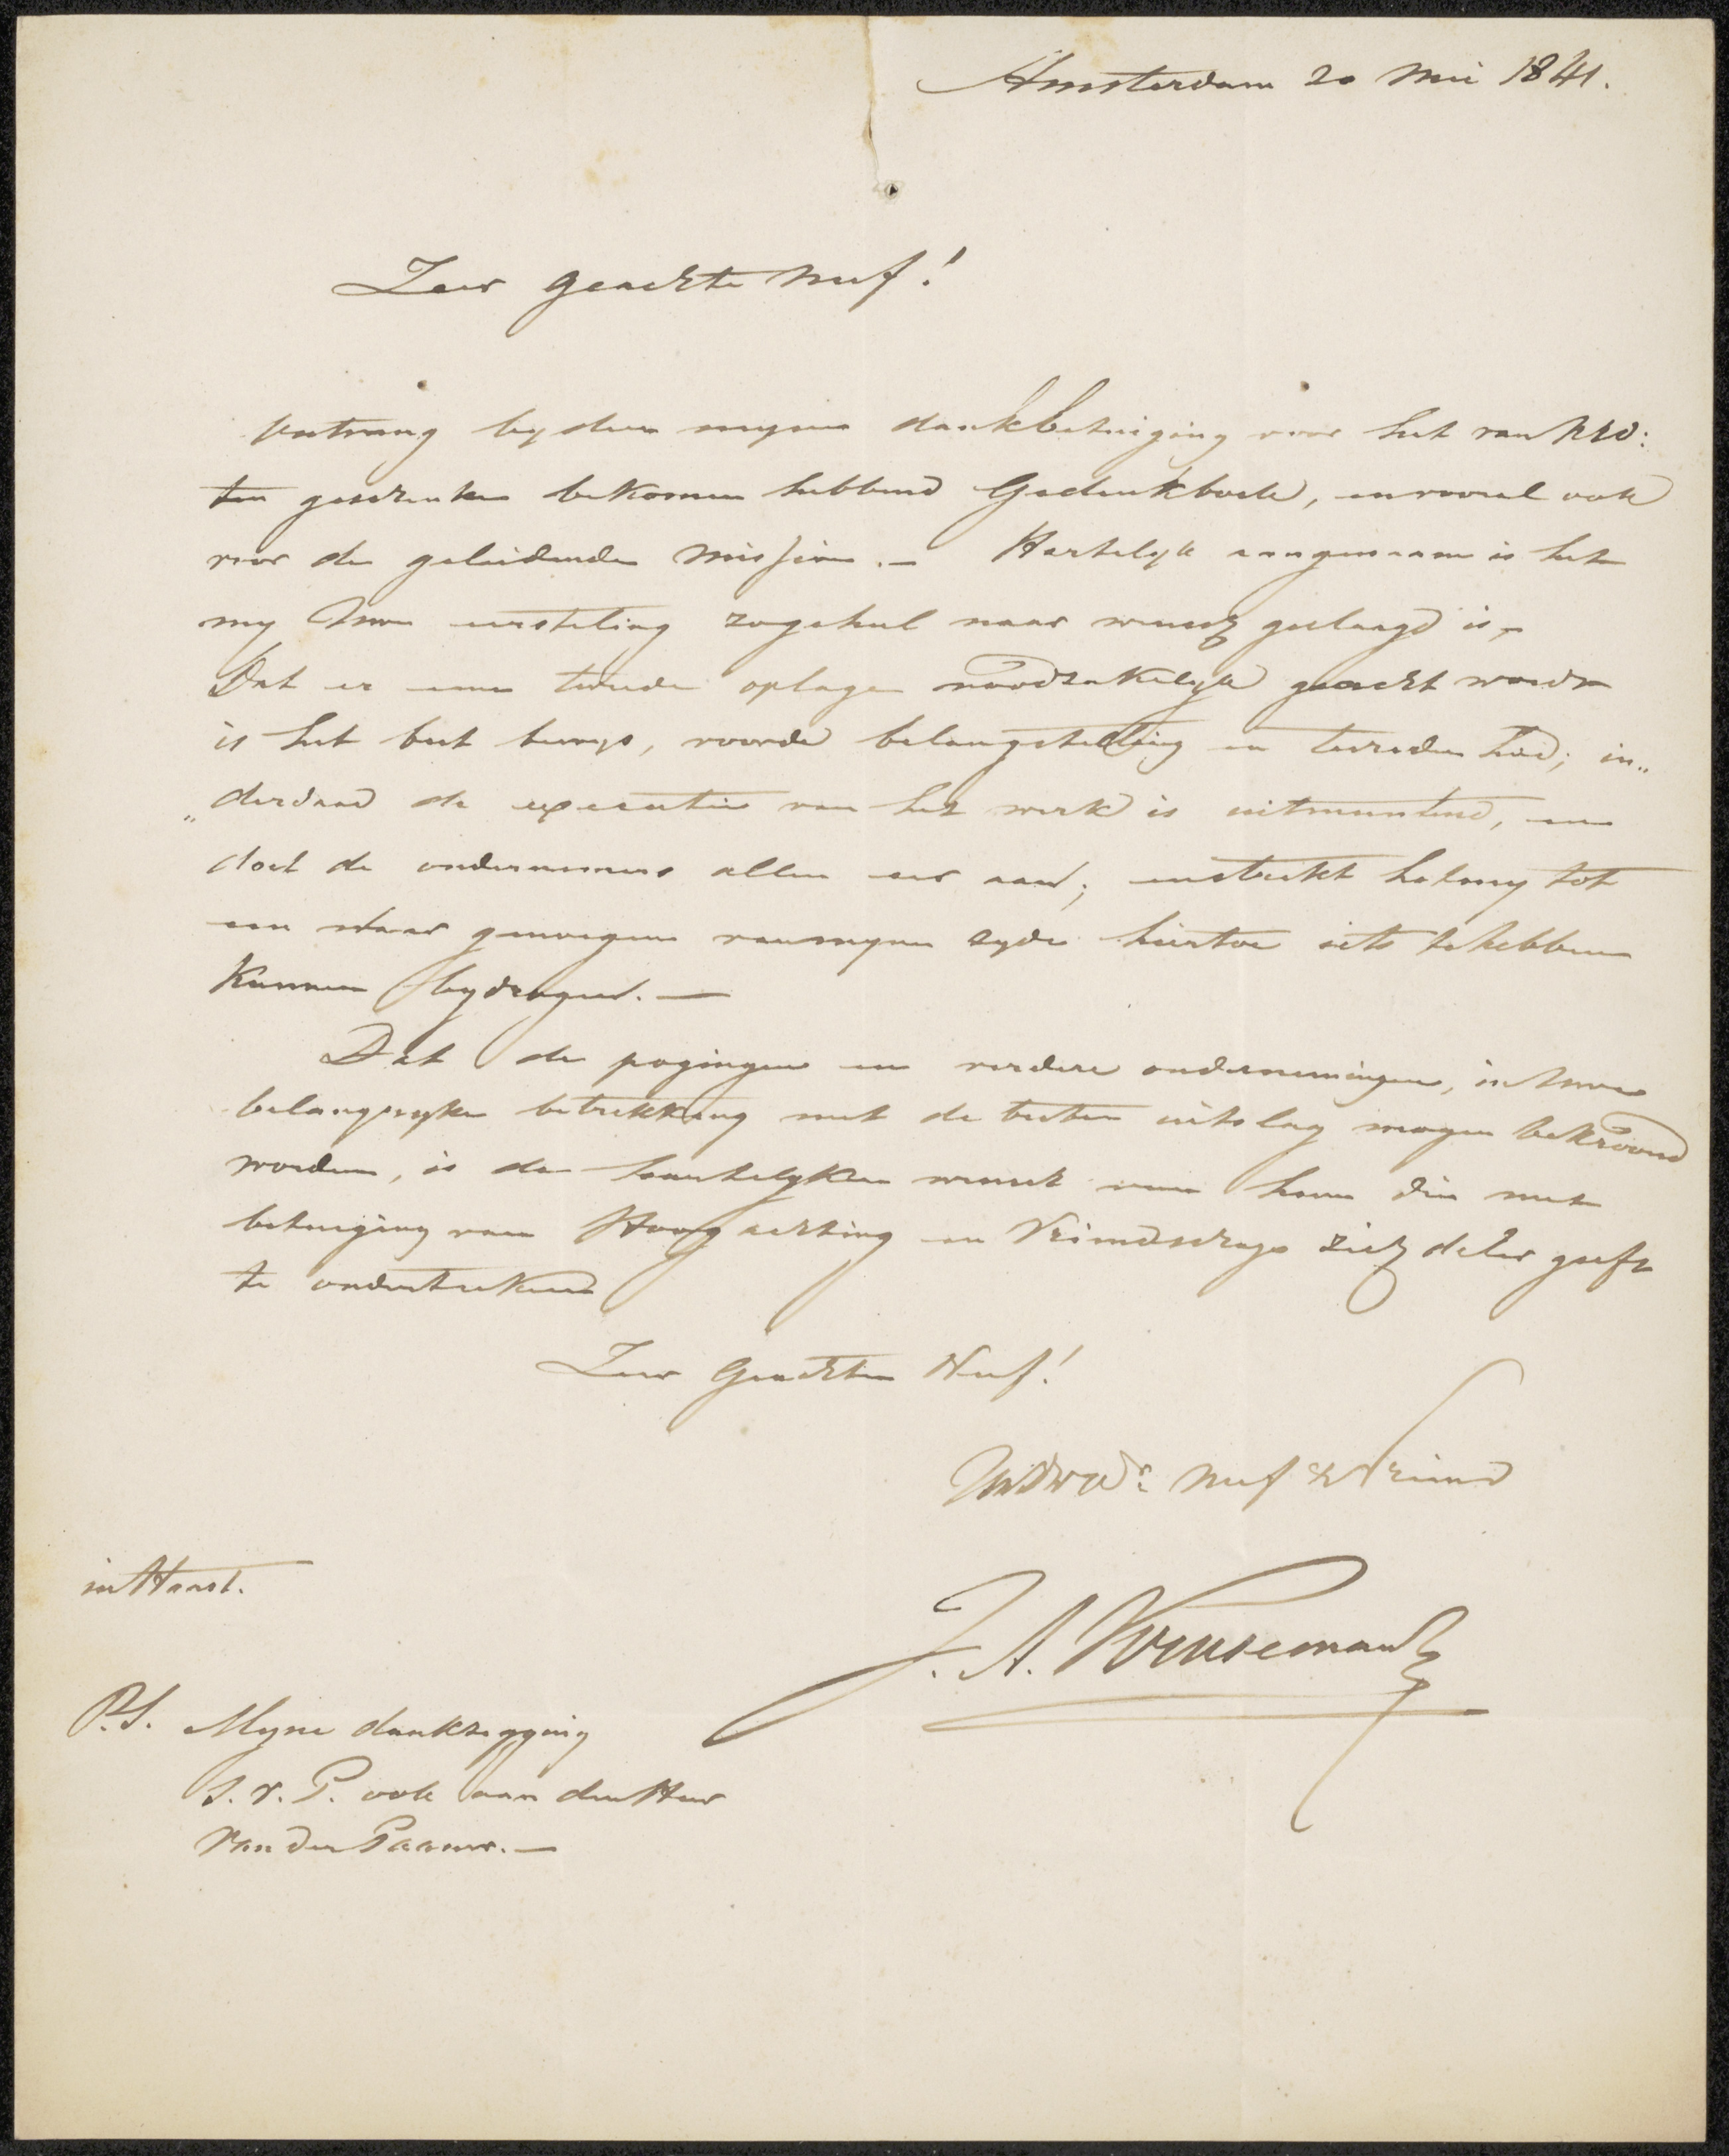 Amsterdam 20 Mei 1841.
Zeer geachte Neef!
Ontvang by deze mijne dankbetuiging voor het van UEd:
ten geschenke bekomen hebbend Gedenkboek, en vooral ook
voor de geleidende Missive. — Hartelyk aangenaam is het
my Uwe eersteling zogeheel naar wensch geslaagd is, —
Dat er eene tweede oplage noodzakelyk geacht wordt
is het best bewys, voor de belangstelling en tevredenheid; in„
„derdaad de executie van het werk is uitmuntend, en
doet de ondernemers alle eer aan; en strekt het my tot
een waar genoegen van myne zyde hiertoe iets te hebben
kunnen bydragen. —
Dat de pogingen en verdere ondernemingen, in Uwe
belangryke betrekking met de besten uitslag mogen bekroond
worden, is de hartelyken wensch van hem die met
betuiging van Hoogachting en Vriendschap zich de eer geeft
te onderteekenen
Zeer Geachten Neef!
UEdDwDr: Neef & Vriend
J. A. Kruseman
in Haast.
P.S. Myne dankzegging
s.v.P. ook aan den Heer
Van der Paauw. —